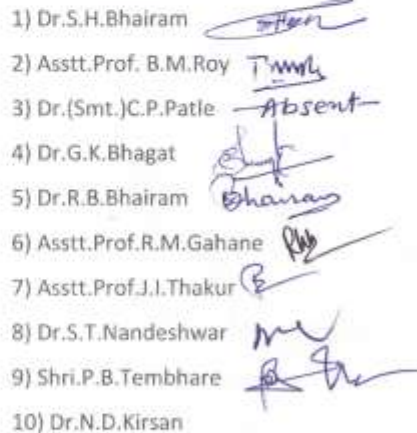 1) Dr.S.H.Bhairam
2) Asstt.Prof. B.M.Roy
3) Dr.(Smt.)C.P.Patle -Absent-
4) Dr.G.K.Bhagat
5) Dr.R.B.Bhairam Bhairam
6) Asstt.Prof.R.M.Gahane
7) Asstt.Prof.J.I.Thakur
8) Dr.S.T.Nandeshwar
9) Shri.P.B.Tembhare
10) Dr.N.D.Kirsan